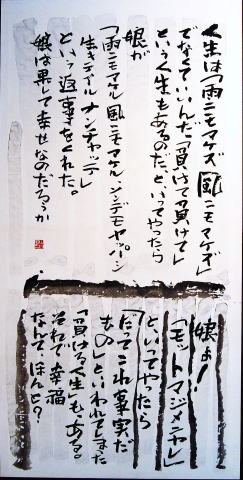 人生は「雨ニモマケズ 風ニモマケズ」
でなくていいんだ「負けて負けて」
という人生もあるのだと、いってやったら
娘が
「雨ニモマケル 風ニモマケル・ソシデモヤッパーシ
生きテイル ナンチャッテ」
という返事をくれた。
娘は果して幸せなのだろうか
娘よ!
「モットマジメニヤレ」
といってやったら
「だってこれ事実だ
もの」といわれてしまった
「負ける人生」も、ある。
それで幸福
なんて、ほんと?